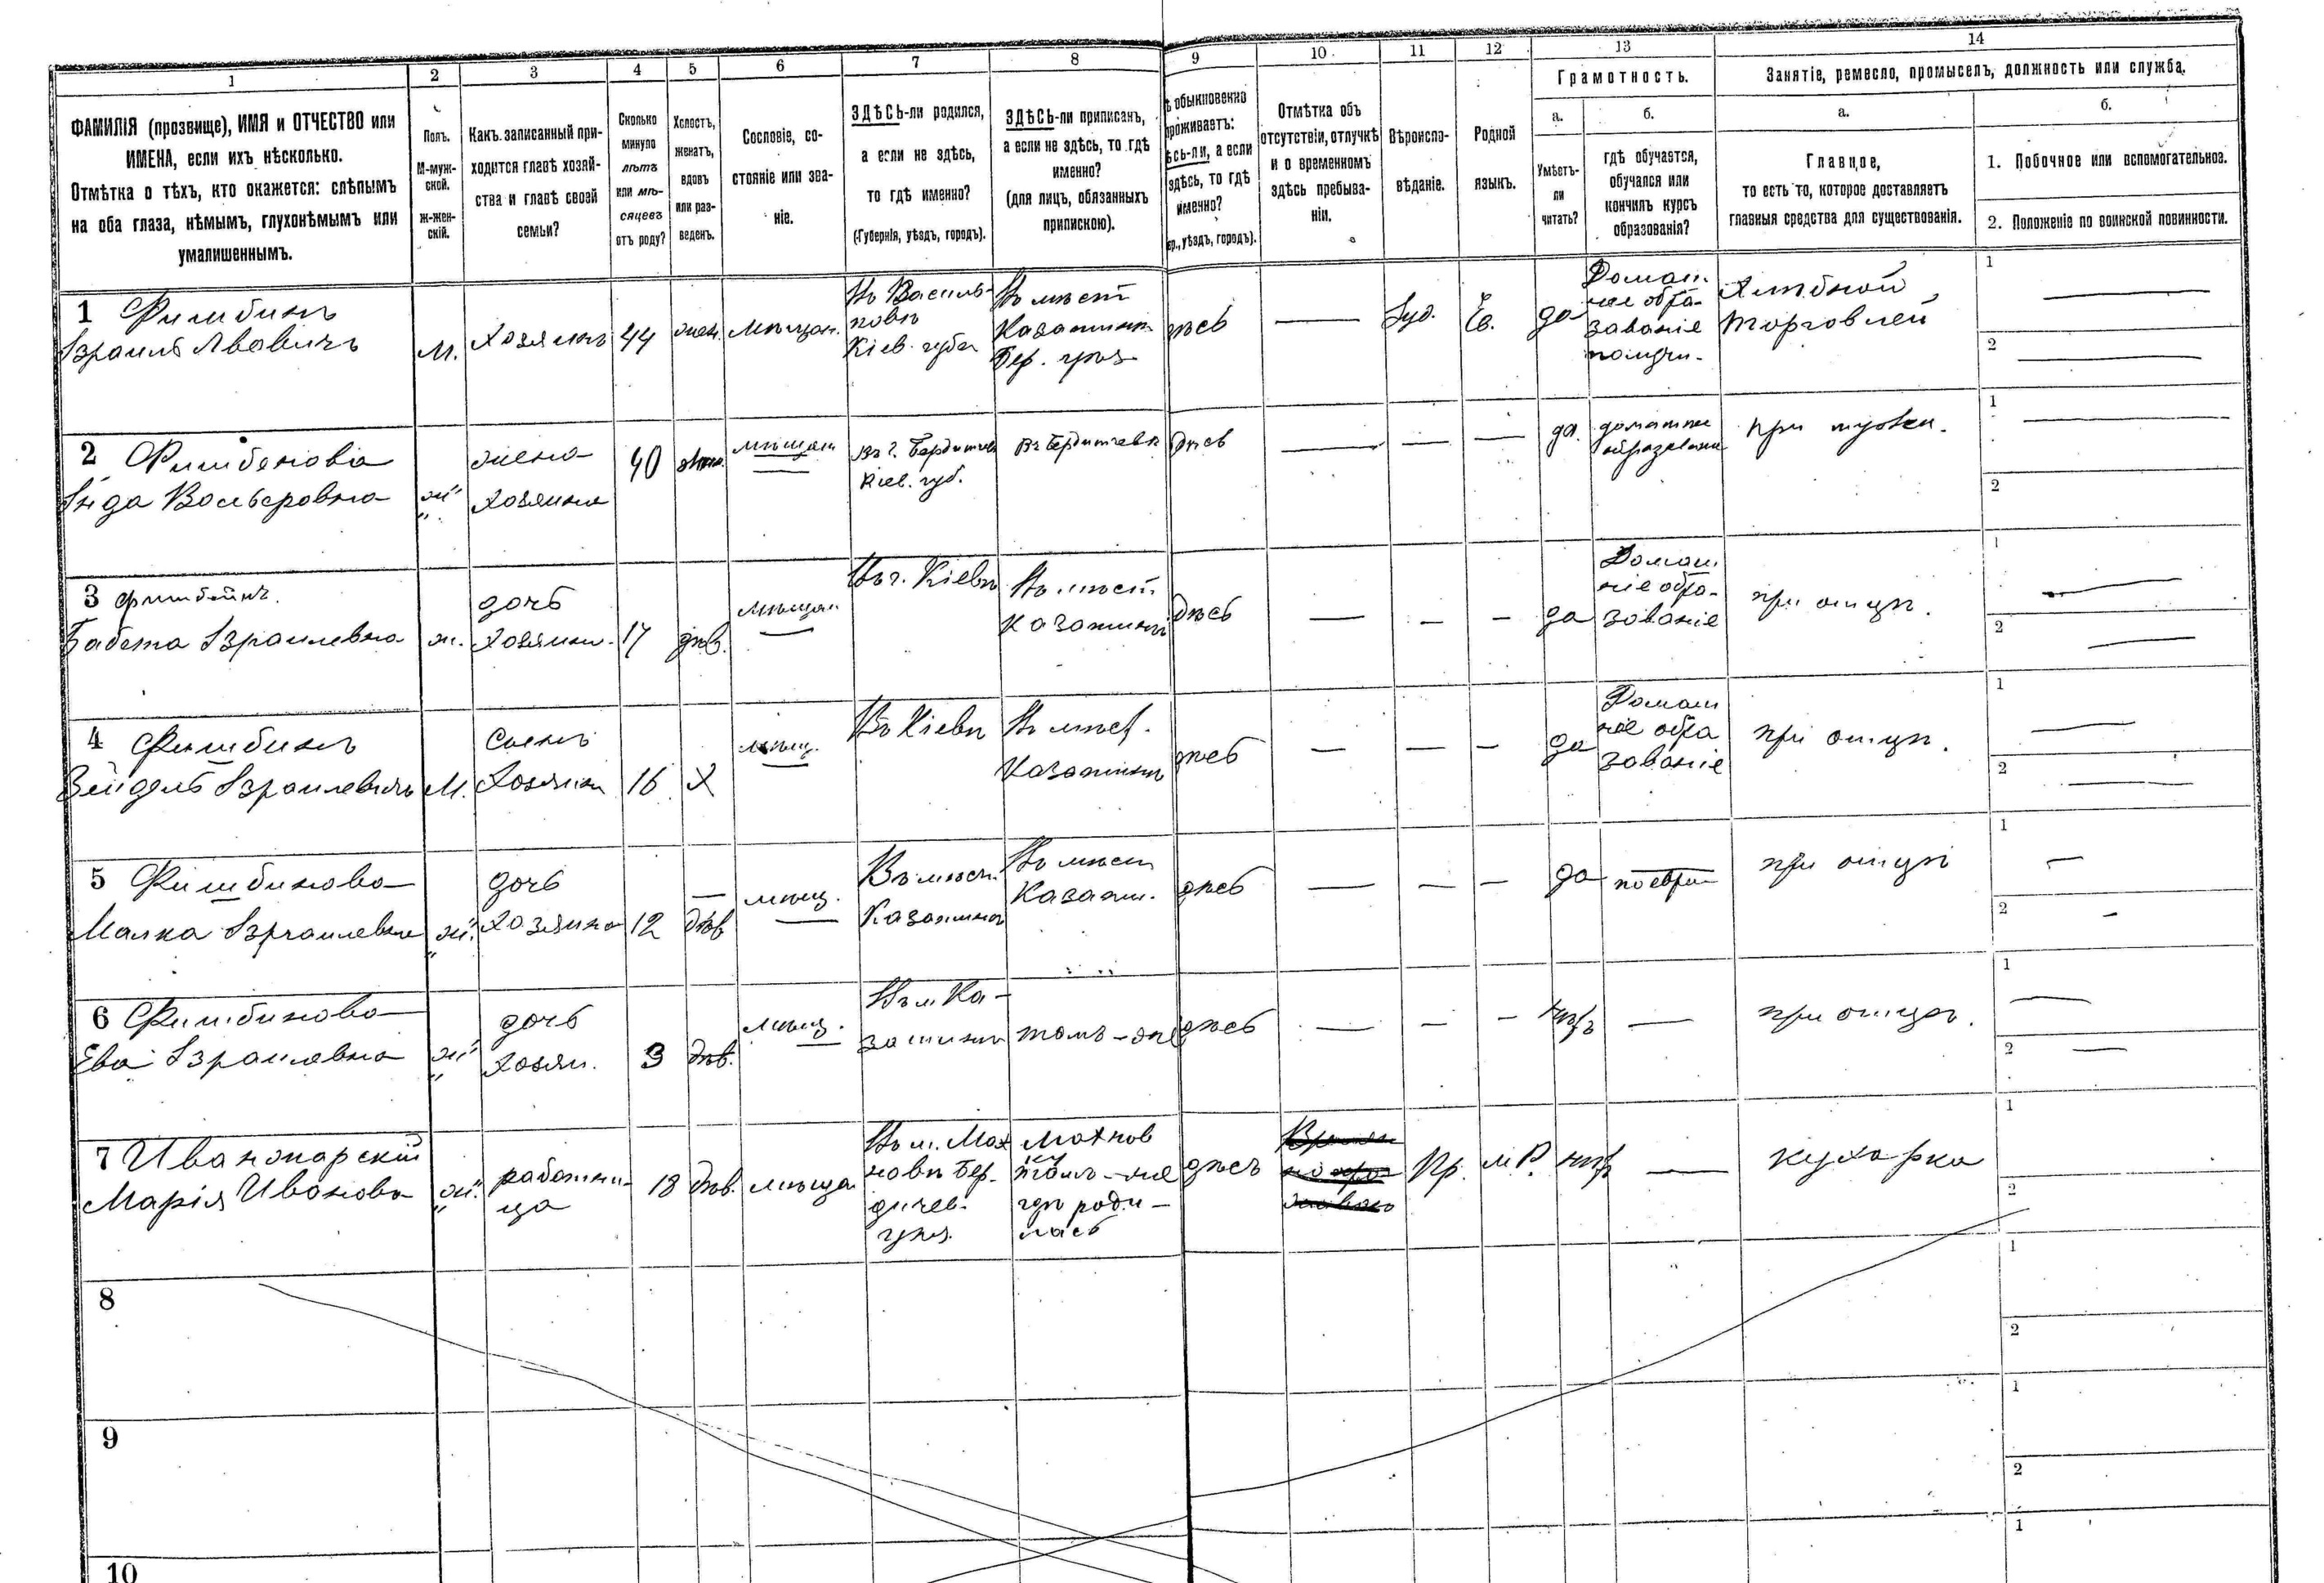 1 2 3 4 5 6 7 8 9 10 11 12 13 14
ФАМИЛІЯ (прозвище), ИМЯ и ОТЧЕСТВО или
ИМЕНА, если ихъ нѣсколько.
Отмѣтка о тѣхъ, кто окажется: слѣпымъ
на оба глаза, нѣмымъ, глухонѣмымъ или
умалишеннымъ.
Полъ.
М-муж-
ской.
ж-жен-
скій.
Какъ записанный при-
ходится главѣ хозяй-
ства и главѣ своей
семьи?
Сколько
минуло
лѣтъ
или мѣ-
сяцевъ
отъ роду?
Холостъ,
женатъ,
вдовъ
или раз-
веденъ.
Сословіе, со-
стояніе или зва-
ніе.
ЗДѢСЬ-ли родился,
а если не здѣсь,
то гдѣ именно?
(Губернія, уѣздъ, городъ).
ЗДѢСЬ-ли приписанъ,
а если не здѣсь, то гдѣ
именно?
(для лицъ, обязанныхъ
припискою).
ѣ обыкновенно
роживаетъ:
ѣсь-ли, а если
здѣсь, то гдѣ
именно?
р., уѣздъ, городъ).
Отмѣтка объ
отсутствіи, отлучкѣ
и о временномъ
здѣсь пребыва-
ніи.
Вѣроиспо-
вѣданіе.
Родной
языкъ.
Грамотность.
а.
Умѣетъ-
ли
читать?
б.
гдѣ обучается,
обучался или
кончилъ курсъ
образованія?
Занятіе, ремесло, промыселъ, должность или служба.
а.
Главное,
то есть то, которое доставляетъ
главныя средства для существованія.
б.
1. Побочное или вспомогательное.
2. Положеніе по воинской повинности.
1 Фишбинъ
Израиль Лвовичъ
М.
Хозяинъ
44
жен.
Мѣщан.
Въ Василь-
ковѣ
Кіев. губ.
Въ мѣст
Казатинѣ
Бер. уѣз
здѣсь
Іуд.
Ев.
да
Домаш.
нее обра-
зованіе
получи-
Хлѣбной
торговлей
1
2
2 Фишбенова
Вольфровна
ж
жена
хозяина
40
мѣщан
Въ г. Бердичев
Кіев. губ.
Въ Бердичевѣ
здѣсь
да.
домашнее
образованіе
При мужѣ.
1
2
3 Фишбейнъ.
Бабета Израилевна
ж.
дочь
хозяина
17
дѣв.
мѣщан.
Въ г. Кіевѣ
Въ мѣст
Казатинѣ
здѣсь
да
Домаш.
ніе обра-
зованіе
при отцѣ.
1
2
4 Фишбинъ
Зейдель Израилевичъ
М.
Сынъ
Хозяина
16
Х
мѣщ.
Въ Кіевѣ
Въ мѣст.
Казатинѣ
здѣсь
да
Домаш
нее обра
зованіе
при отцѣ.
1
2
5 Фишбинова
Малка Израилевна
ж.
дочь
хозяина
12
дѣв
мѣщ.
Въ мѣст.
Казатинѣ
Въ мѣст
Казати.
здѣсь
да
по еврей
при отцѣ
1
2
6 Фишбинова
Ева Израилевна
ж
дочь
хозяи.
3
дѣв.
мѣщ.
Въ м. Ка-
затинѣ
тамъ-же
здѣсь
нѣтъ
при отцѣ.
1
2
7
Марія Иванова
ж.
работни-
ца
18
дѣв.
мѣща
Въ м. Мах
новкѣ Бер-
дичев.
уѣз.
Махнов
тамъ-же
гдѣ роди-
лась
здѣсь
Пр.
м. Р.
нѣтъ
кухарка
1
2
8
1
2
9
1
2
10
1